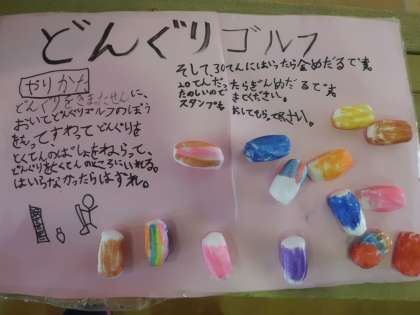 どんぐりゴルフ
やりかた
どんぐりをきまったせんに、
おいてどんぐりゴルフのぼう
をもって、すわってどんぐりを
とくてんのばしょをねらって、
どんぐりをとくてんのところにいれる。
はいらなかったらはずれ。
そして、30てんにはいったら金めだるです。
20てんだったらぎんめだるです。
たのしいのできてください。
スタンプも おしてもらってください。